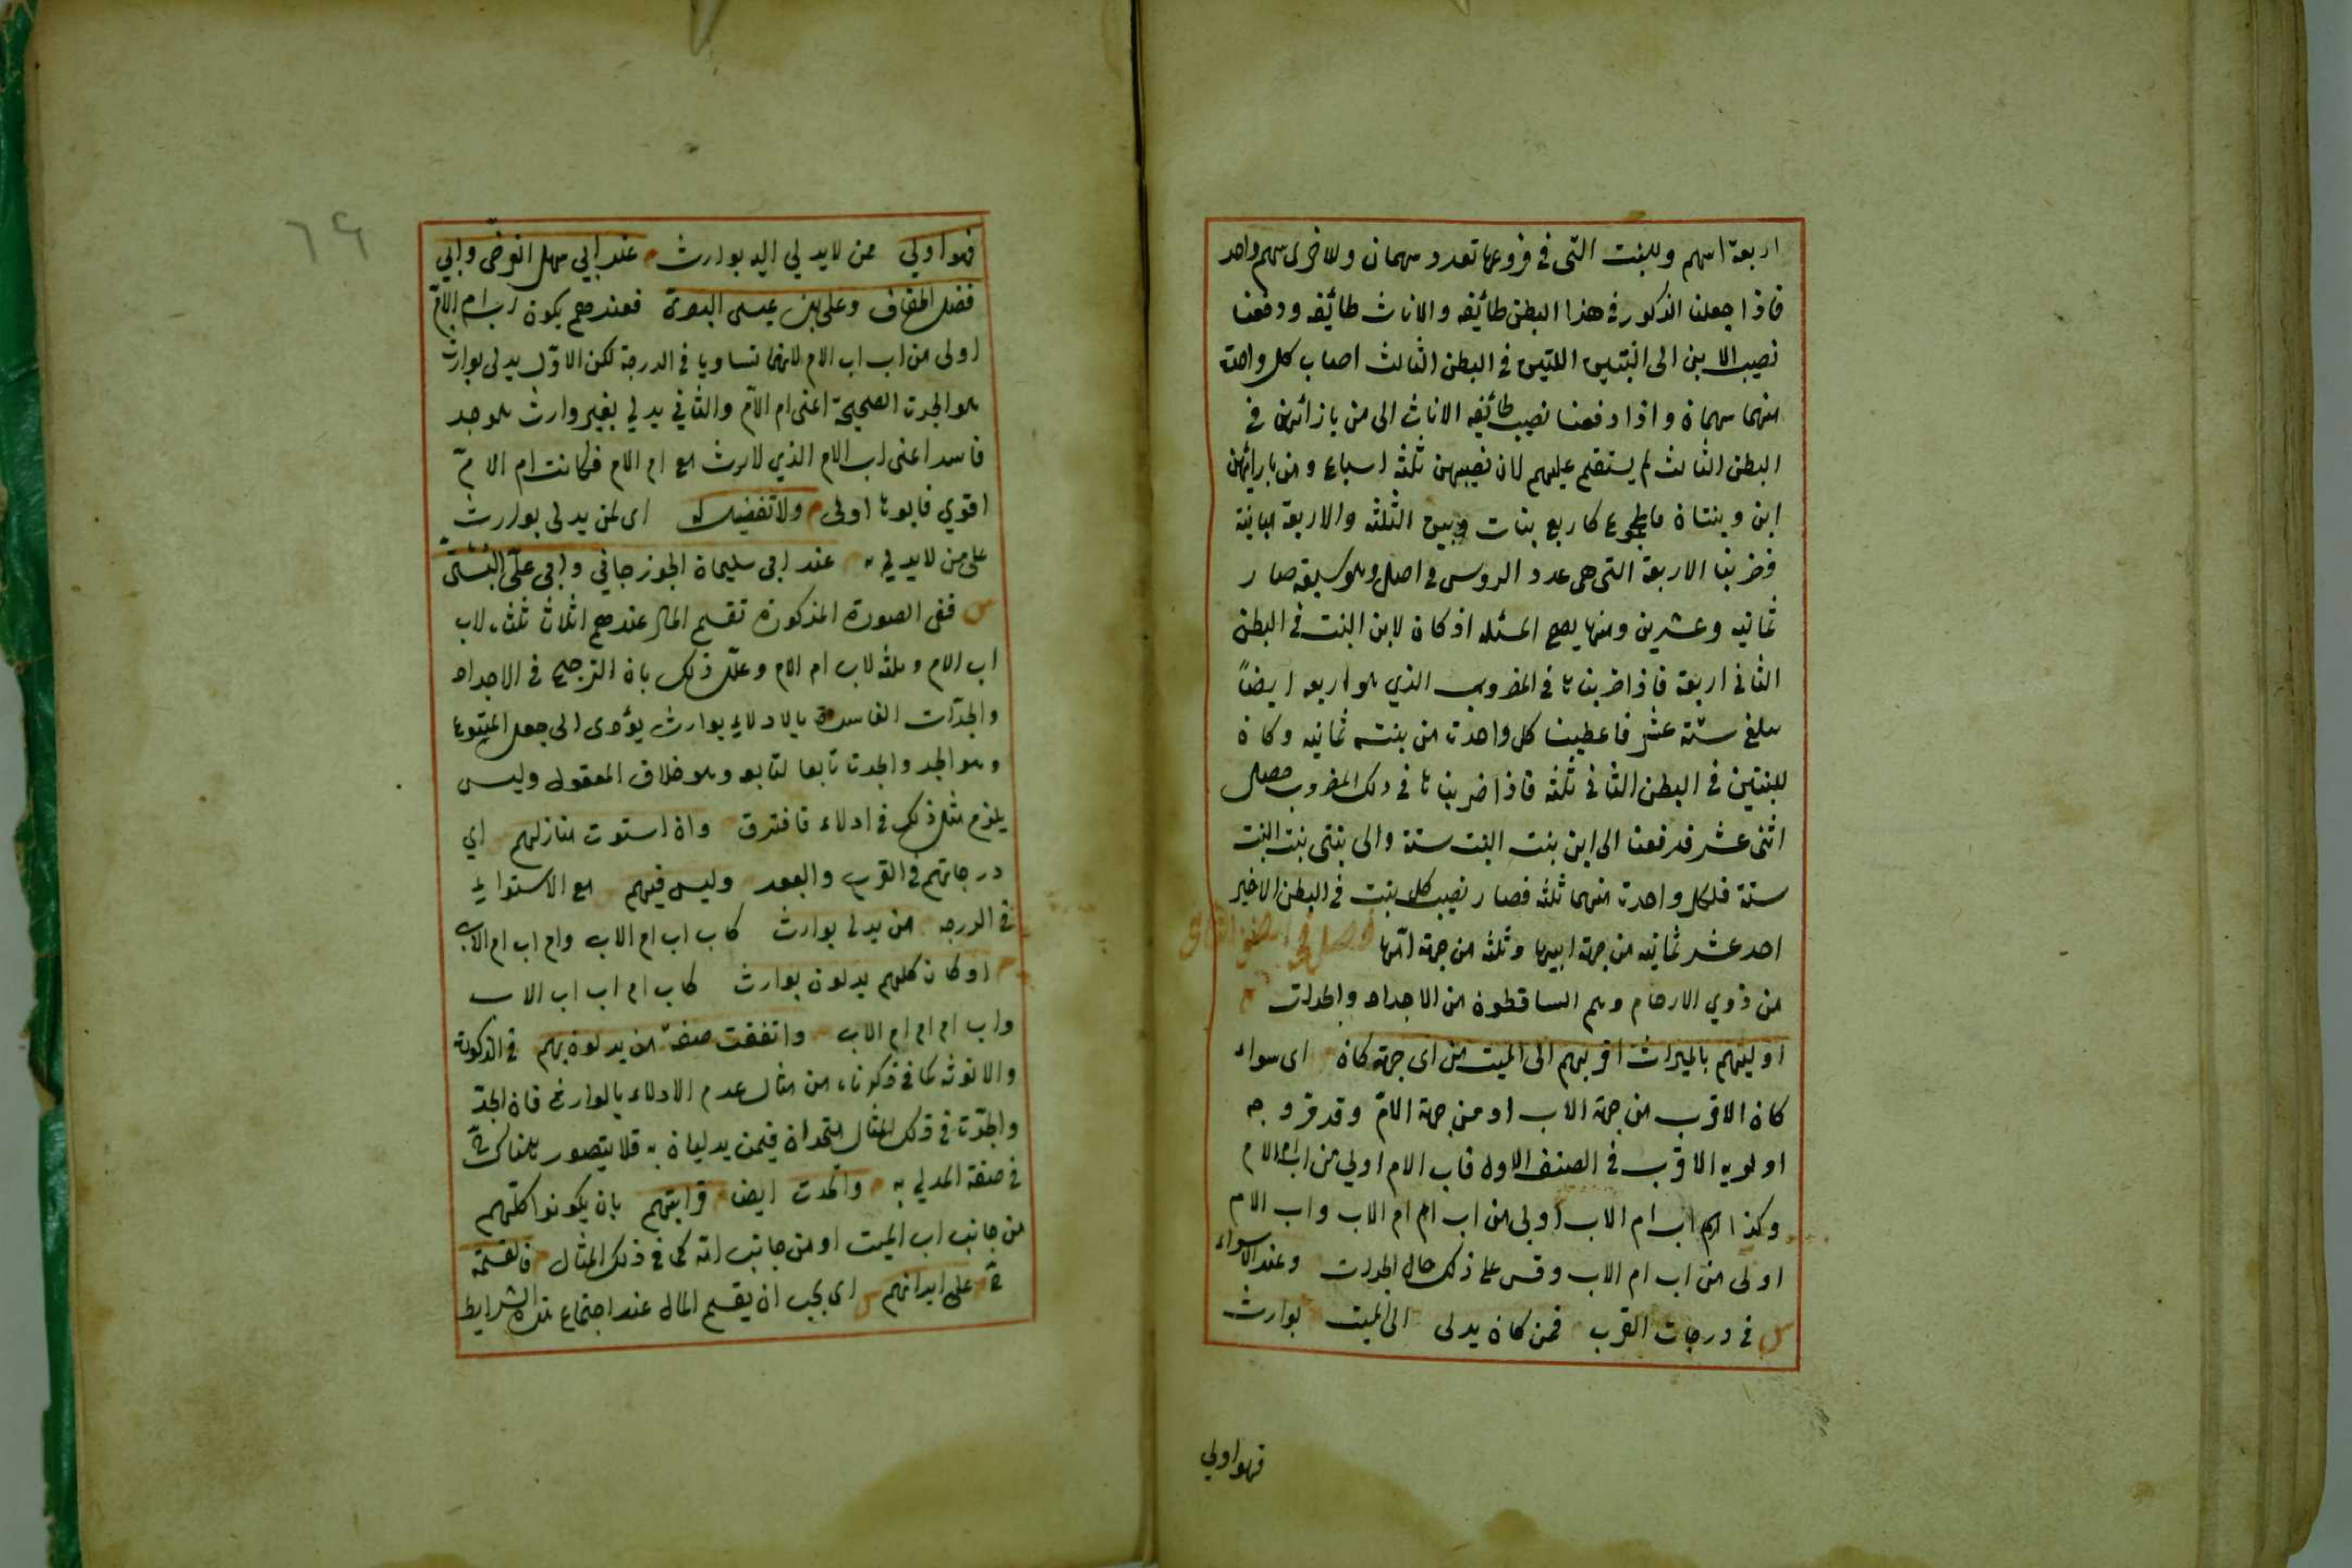 اربعة اسهم وللبنت التى في فروعها تعدد سهمان وللاخرى سهم واحد
فاذا جعلنا الذكور في هذا البطن طائفه والاناث طائفه ودفعنا
نصيب الابن الى البنتين اللتين في البطن الثالث اصاب كل واحدة
منهما سهمان واذا دفعنا نصيب طائفه الاناث الى من بازائهن في
البطن الثالث لم يستقم عليهم لان نصيبهن ثلثه اسباع ومن بازائهن
ابن وبنتان فالمجموع كاربع بنات وبين الثلثه والاربعة مباينة
فضربنا الاربعة التى هي عدد الروس في اصل وهو سبعة صار
ثمانيه وعشرين ومنها يصح المسئله اذ كان لابن البنت في البطن
الثاني اربعة فاذا ضربناها في المضروب الذي هو اربعه ايضاً
بلغ ستة عشر فاعطينا كل واحدة من بنتيه ثمانيه وكان
للبنتين في البطن الثاني ثلثه فاذا ضربناها في ذلك المضروب حصل
اثنى عشر فدفعنا الى ابن بنت البنت ستة والى بنتى بنت البنت
ستة فلكل واحدة منهما ثلثه فصار نصيب كل بنت في البطن الاخير
احد عشر ثمانيه من جهة ابيها وثلثه من جهة امّها فصل في الصنف الثاني
من ذوي الارحام وهم الساقطون من الاجداد والجدات م
اوليهم بالميراث اقربهم الى الميت من اى جهة كان اى سواء
كان الاقرب من جهة الاب او من جهة الامّ وقد مر وجه
اولويه الاقرب في الصنف الاول فاب الام اولي من اب ام الام
وكذا اب ام الاب اولى من اب ام ام الاب واب الام
اولى من اب ام الاب وقس على ذلك حال الجدات وعند الاستواء
س في درجات القرب فمن كان يدلى الى الميت بوارث
فهو اولي
٦٩
فهو اولي ممن لا يدلي اليه بوارث م عند ابي سهل الفرضى وابي
فضل الخفاف وعلى بن عيسى البصرى فعندهم يكون اب ام الامّ
اولى من اب اب الام لانهما تساويا في الدرجة لكن الاوّل يدلى بوارث
هو الجدة الصحيحة اعنى ام الامّ والثاني يدلي بغير وارث هو جد
فاسد اعنى اب الام الذي لا يرث مع ام الام فكانت ام الامّ
اقوي فابوها اولى م ولا تفضيل له اى لمن يدلى بوارث
على من لا يدلي به عند ابى سليمان الجوزجاني وابى علىّ البستىّ
س ففى الصورة المذكورة تقسم المال عندهم اثلاثا ثلثاه لاب
اب الام وثلثه لاب ام الام وعلّل ذلك بان الترجيح في الاجداد
والجدّات الفاسدة بالادلاء بوارث يؤدى الى جعل المتبوع
وهو الجد والجدة تابعا لتابعه وهو خلاف المعقول وليس
يلزم مثل ذلك في اولاد فافترق وان استوت منازلهم اي
درجاتهم في القرب والبعد وليس فيهم مع الاستواء
في الدرجه من يدلى بوارث كاب اب ام الاب وام اب ام الاب
م او كان كلهم يدلون بوارث كاب ام اب اب الاب
واب ام ام ام الاب واتفقت صفة من يدلون بهم في الذكورة
والانوثه كما في ذكرناه من مثال عدم الادلاء بالوارث فان الجدّ
والجدّة في ذلك المثال متحدان فيمن يدليان به فلا يتصور هناك
في صفة المدلي به واتحدت ايضا قرابتهم بان يكونوا كلّهم
من جانب اب الميت او من جانب امّه كما في ذلك المثال فالقسمة
ح على ابدانهم س اى يجب ان يقسم المال عند اجتماع هذه الشرايط